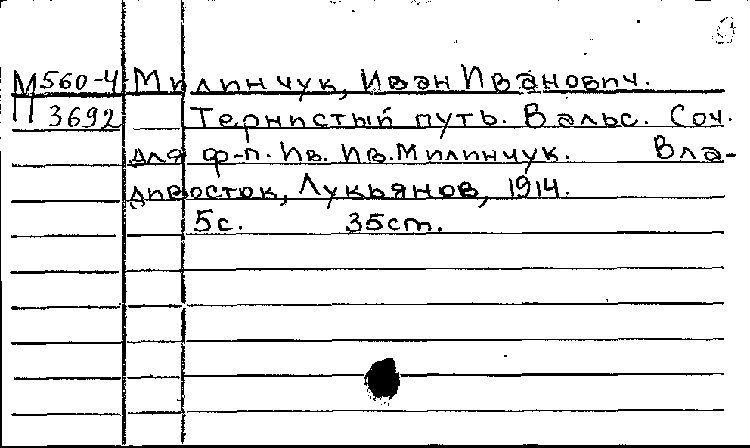 М560-4 Милинчук, Иван Иванович.
П3692 Тернистый путь. Вальс. Соч.
для ф-п. Ив. Ив. Милинчук. Вла-
дивосток, Лукьянов, 1914.
5с. 35см.